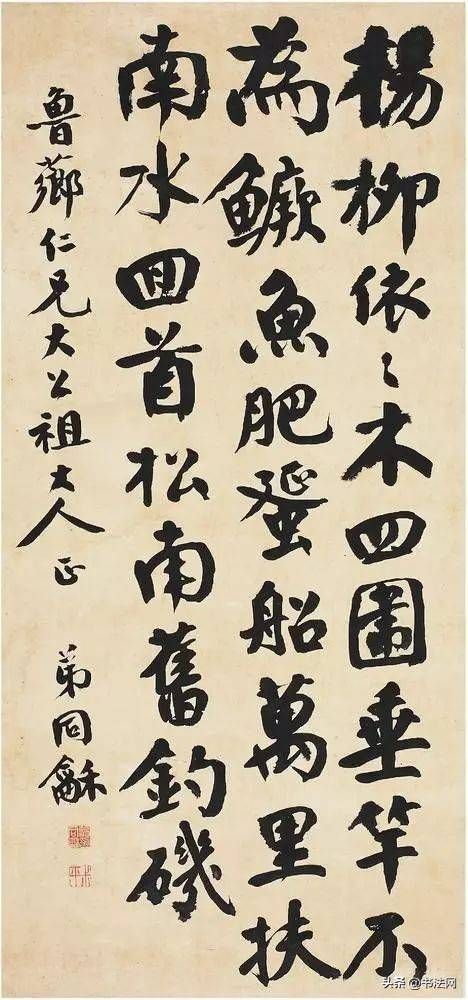 楊柳依〻木四圍垂竿不
為鱖魚肥蜑船萬里扶
南水囬首松南舊釣磯
魯薌仁兄大公祖大人正 弟同龢
头条@书法网